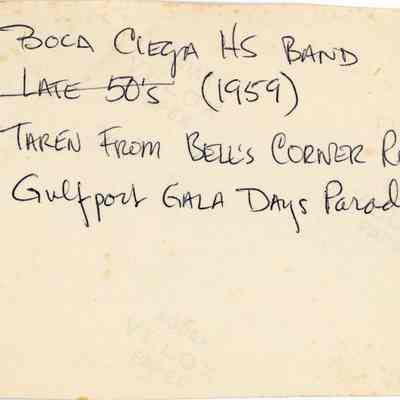 Boca Ciega HS Band
Late 50's (1959)
Taken From Bell's Corner R
Gulfport Gala Days Parad